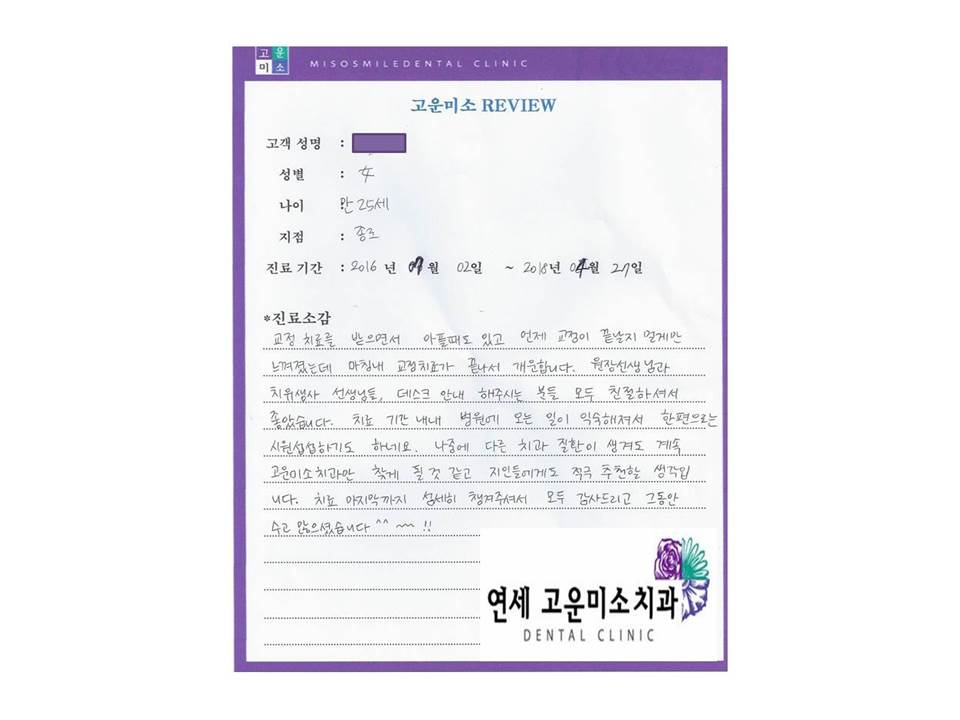 고운
미소
MISOSMILEDENTAL CLINIC
고운미소 REVIEW
고객 성명 :
성별 : 女
나이 : 만 25세
지점 : 종로
진료 기간 : 2016 년 07월 02일 ~ 2018년 04월 27일
*진료소감
교정 치료를 받으면서 아플때도 있고 언제 교정이 끝날지 멀게만
느껴졌는데 마침내 교정치료가 끝나서 개운합니다. 원장선생님과
치위생사 선생님들, 데스크 안내 해주시는 분들 모두 친절하셔서
좋았습니다. 치료 기간 내내 병원에 오는 일이 익숙해져서 한편으로는
시원섭섭하기도 하네요. 나중에 다른 치과 질환이 생겨도 계속
고운미소치과만 찾게 될 것 같고 지인들에게도 적극 추천할 생각입
니다. 치료 마지막까지 섬세히 챙겨주셔서 모두 감사드리고 그동안
수고 많으셨습니다 ^^ ~~ !!
연세 고운미소치과
DENTAL CLINIC